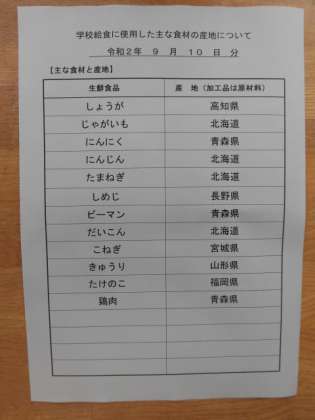 学校給食に使用した主な食材の産地について
令和2年 9 月 10 日 分
【主な食材と産地】
生鮮食品 産 地（加工品は原材料）
しょうが 高知県
じゃがいも 北海道
にんにく 青森県
にんじん 北海道
たまねぎ 北海道
しめじ 長野県
ピーマン 青森県
だいこん 北海道
こねぎ 宮城県
きゅうり 山形県
たけのこ 福岡県
鶏肉 青森県